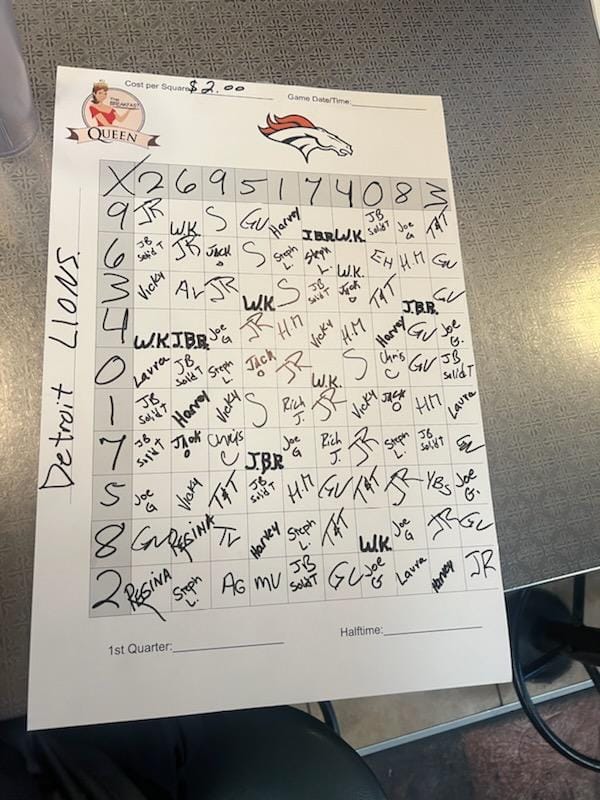 Cost per Square: $2.00
Game Date/Time:
THE BREAKFAST
QUEEN
Detroit LIONS
X 2 6 9 5 1 7 4 0 8 3
9 JR W.K. S GV Harvey J.B.R. W.K. JB Solid T Joe G TAT
6 JB Solid T JR JACK O S Steph L. Steph L. W.K. EH H.M GV
3 Vicky AV JR W.K S JB Solid T Jack O TAT J.B.R. GV
4 W.K J.B.R. Joe G JR H.M Vicky H.M Harvey GV Joe G.
0 Laura JB Solid T Steph L. JACK O JR W.K. S Chris C GV JB Solid T
1 JB Solid T Harvey Vicky S Rich J. JR Vicky JACK O HM Laura
7 JB Solid T JACK O Chris C J.B.R Joe G Rich J. JR Steph L. JB Solid T
5 Joe G Vicky TAT JB Solid T H.M GV TAT JR YBS Joe G.
8 GV REGINA TV Harvey Steph L. TAT W.K. Joe G JR GV
2 REGINA Steph L. AG MV JB Solid T GV Joe G Laura Harvey JR
1st Quarter:
Halftime: